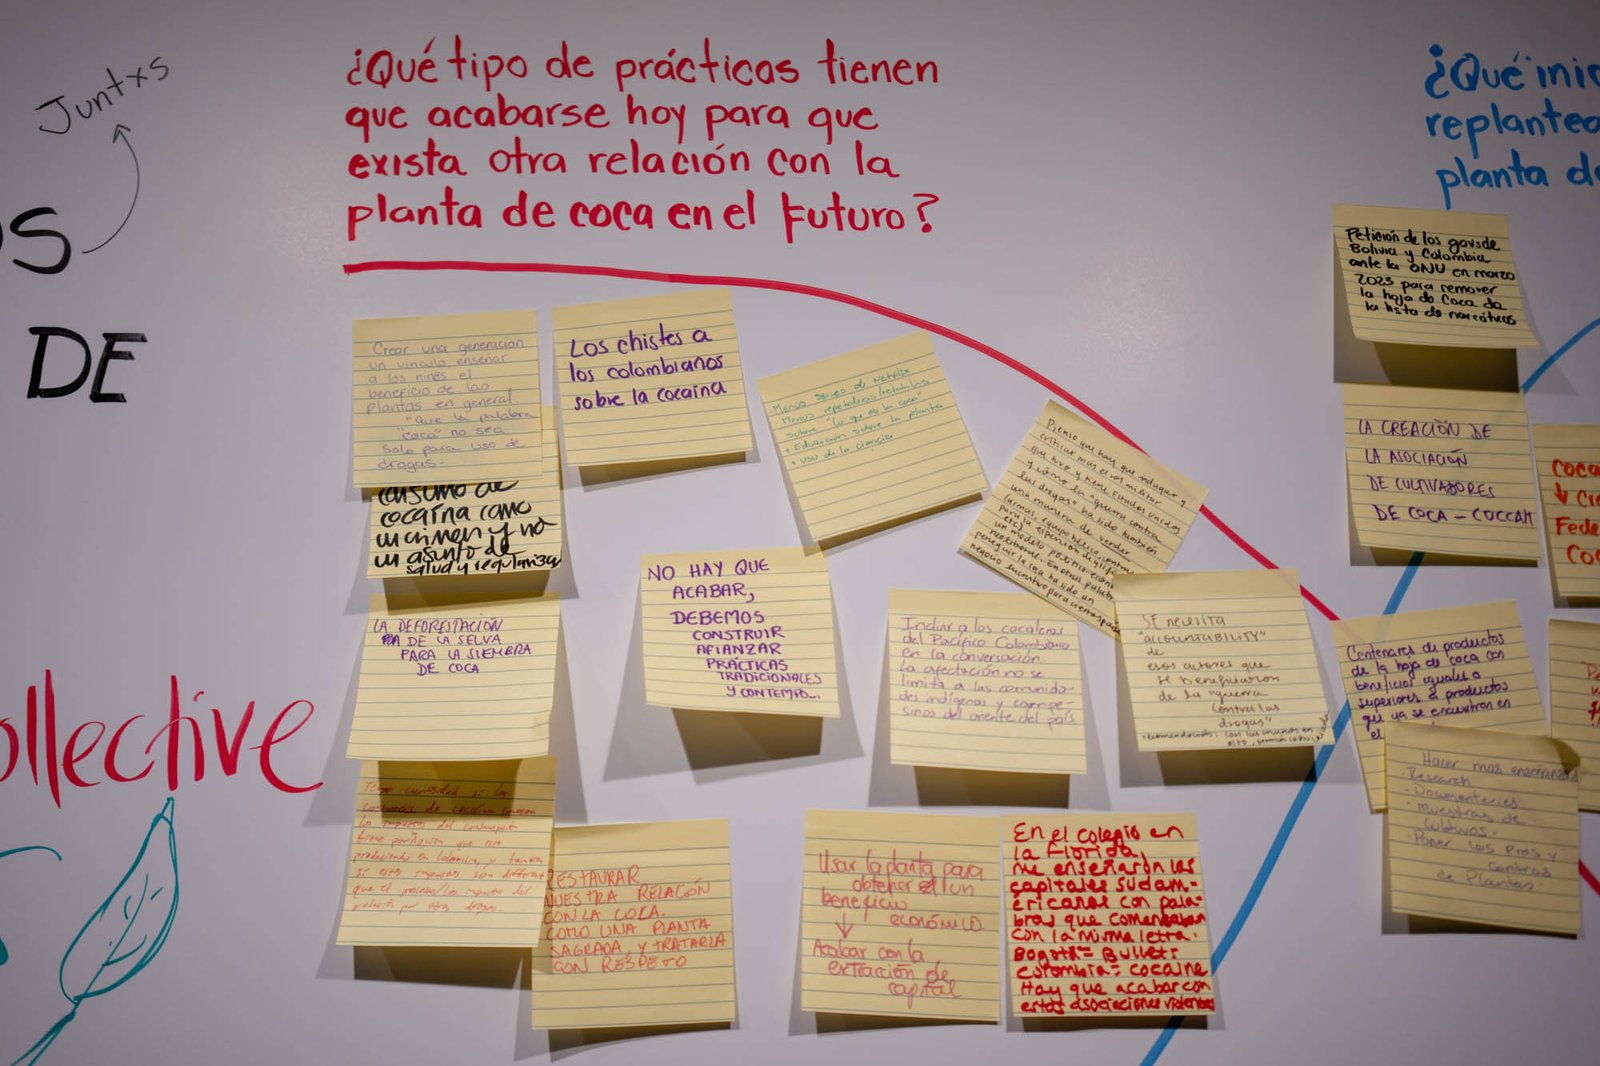 Juntxs
OS
DE
ollective
¿Qué tipo de prácticas tienen
que acabarse hoy para que
exista otra relación con la
planta de coca en el futuro?
¿Qué ini
replantea
planta d
Crear una generación
un vinculo enseñar
a los niños el
beneficio de las
plantas en general.
"Que la palabra
"coca" no sea
solo para uso de
drogas-
consumo de
cocaína como
un crimen y no
un asunto de
salud y
LA DEFORESTACIÓN
DE LA SELVA
PARA LA SIEMBRA
DE COCA
Tengo curiosidad si los
de cocaína conocen
los impactos del
tiene
produciendo en Colombia, y
si estos impactos son diferentes
que el
producción por otras drogas.
RESTAURAR
NUESTRA RELACÓN
CON LA COCA.
COMO UNA PLANTA
SAGRADA, Y TRATARLA
CON RESPETO
Los chistes a
los colombianos
sobre la cocaína
Menos series de Netflix
Menos
sobre "lo que es la coca"
+ Educación sobre la planta
+ uso de la ciencia
NO HAY QUE
ACABAR,
DEBEMOS
CONSTRUIR
AFIANZAR
PRÁCTICAS
TRADICIONALES
Y CONTEMPO...
Pienso que hay que indagar y
criticar más el rol militar
que tuvo y tiene Estados Unidos
y cómo la "guerra contra
las drogas" ha sido también
una manera de vender
(armas, equipo bélico,
para la
etc)
un modelo político
neoliberal. En otras palabras
perseguir la coca ha sido un
negocio lucrativo para
Incluir a los cocaleros
del Pacífico Colombiano
en la conversación.
La afectación no se
limita a las comunida-
des indígenas y campe-
sinas del oriente del país
SE NECESITA
"ACCOUNTABILITY"
de
esos actores que
se beneficiaron
de la "guerra
contra las
drogas"
Usar la planta para
obtener un
beneficio
económico.
↓
Acabar con la
extracción de
capital
En el colegio en
la Florida,
me enseñaron las
capitales sudam-
ericanas con pala-
bras que comenzaban
con la misma letra.
Bogotá = Bullets
Colombia = cocaine
Hay que acabar con
estas asociaciones violentas
Petición de los govs de
Bolivia y Colombia
ante la ONU en marzo
2023 para remover
la hoja de coca de
la lista de narcóticos
LA CREACIÓN DE
LA ASOCIACIÓN
DE CULTIVADORES
DE COCA - COCCAM
Coca
↓ Cre
Fede
Coc
Centenares de productos
de la hoja de coca con
beneficios iguales o
superiores a productos
que ya se encuentran en
el
Hacer mas enseñanzas
- Research
- Documenteries
- Muestras de
cultivos.
- Poner los Pros y
contras
de Plantas.